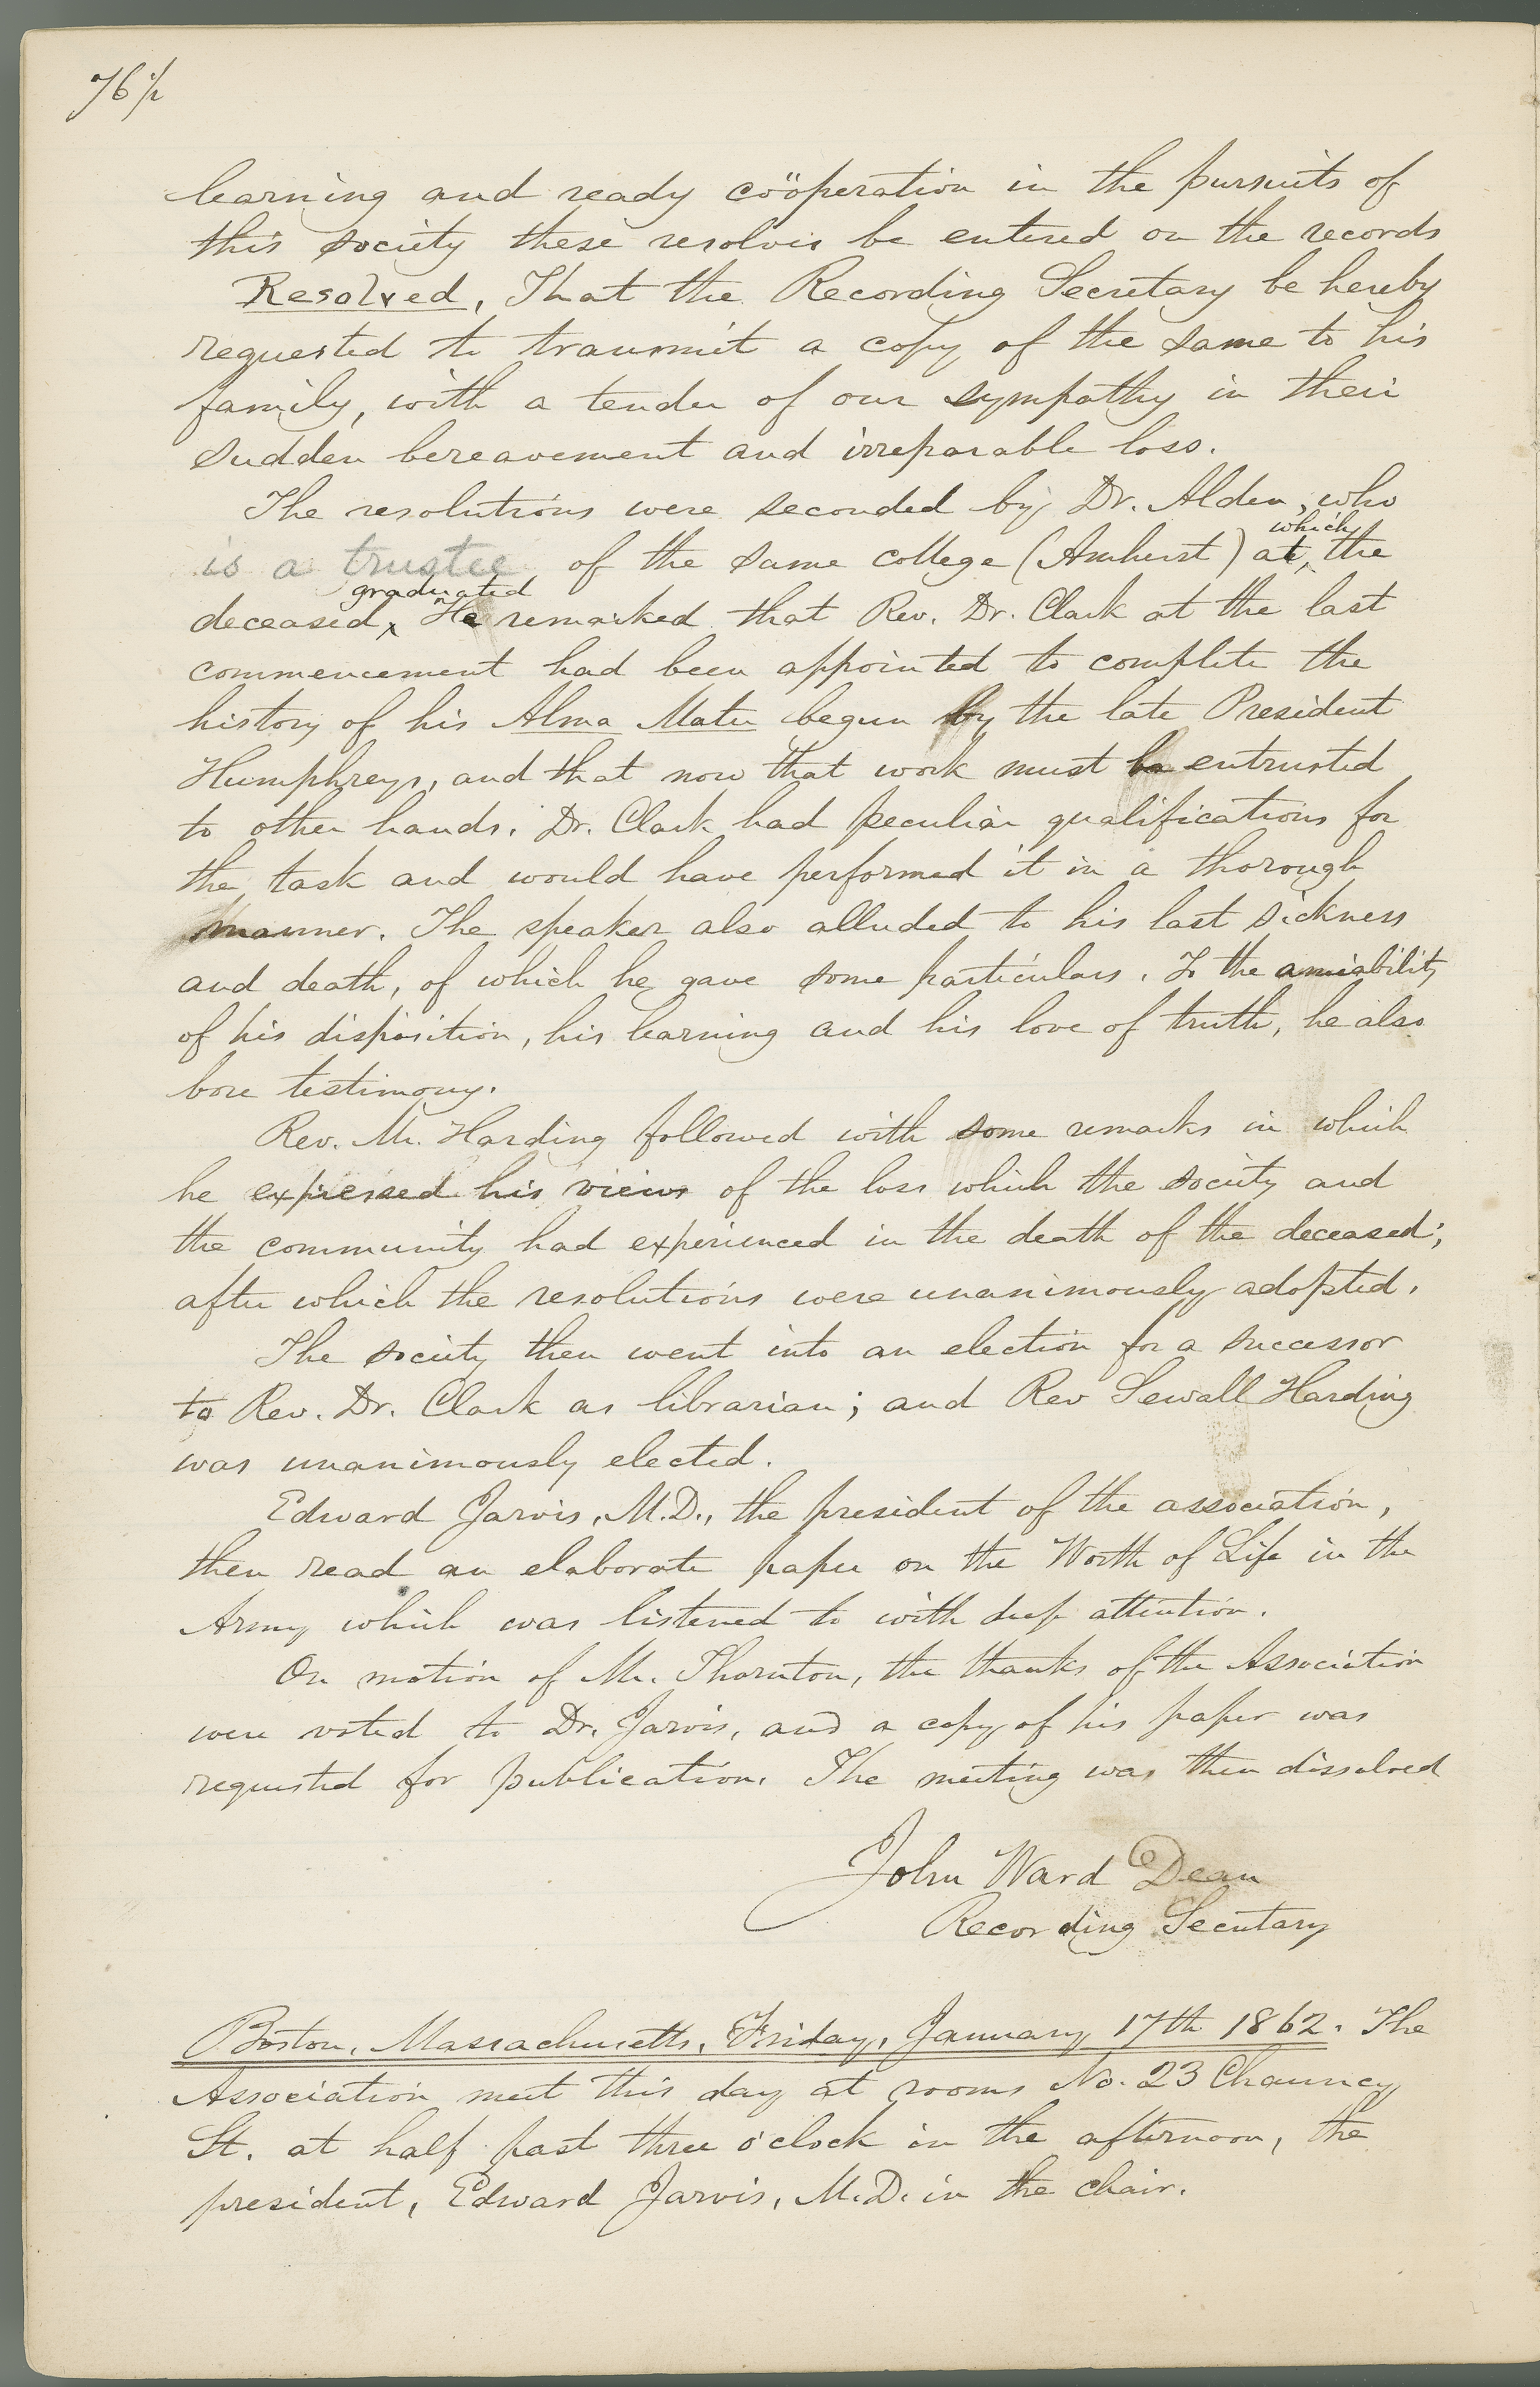 76½
learning and ready coöperation in the pursuits of
this society these resolves be entered on the records
Resolved, That the Recording Secretary be hereby
requested to transmit a copy of the same to his
family, with a tender of our sympathy in their
sudden bereavement and irreparable loss.
The resolutions were seconded by Dr. Alden, who
which
is a trustee of the same college (Amherst) at, the
graduated
deceased, He remarked that Rev. Dr. Clark at the last
commencement had been appointed to complete the
history of his Alma Mater begun by the late President
Humphreys, and that now that work must be entrusted
to other hands. Dr. Clark had peculiar qualifications for
the task and would have performed it in a thorough
manner. The speaker also alluded to his last sickness
and death, of which he gave some particulars. To the amiability
of his disposition, his learning and his love of truth, he also
bore testimony.
Rev. Mr. Harding followed with some remarks in which
he expressed his views of the loss which the society and
the community had experienced in the death of the deceased;
after which the resolutions were unanimously adopted.
The society then went into an election for a successor
to Rev. Dr. Clark as librarian; and Rev Sewall Harding
was unanimously elected.
Edward Jarvis, M.D., the president of the association,
then read an elaborate paper on the Worth of Life in the
Army which was listened to with deep attention.
On motion of Mr. Thornton, the thanks of the Association
were voted to Dr. Jarvis, and a copy of his paper was
requested for publication. The meeting was then dissolved
John Ward Dean
Recording Secretary
Boston, Massachusetts, Friday, January 17th 1862. The
Association met this day at rooms No. 23 Chauncy
St. at half past three o'clock in the afternoon, the
president, Edward Jarvis, M.D. in the chair.